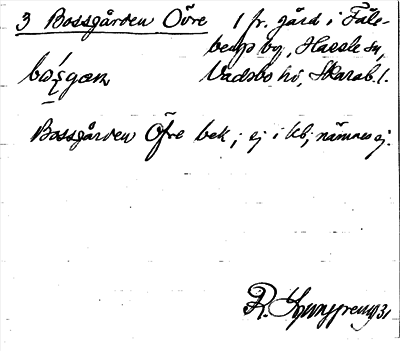 3 Bossgården Övre 1 fr. gård i Fäle-
bergs by, Hassle sn,
Vadsbo hd, Skarab. l.
Bossgården Öfre bek; ej i kb; nämnes ej.
R. Ljunggren 31